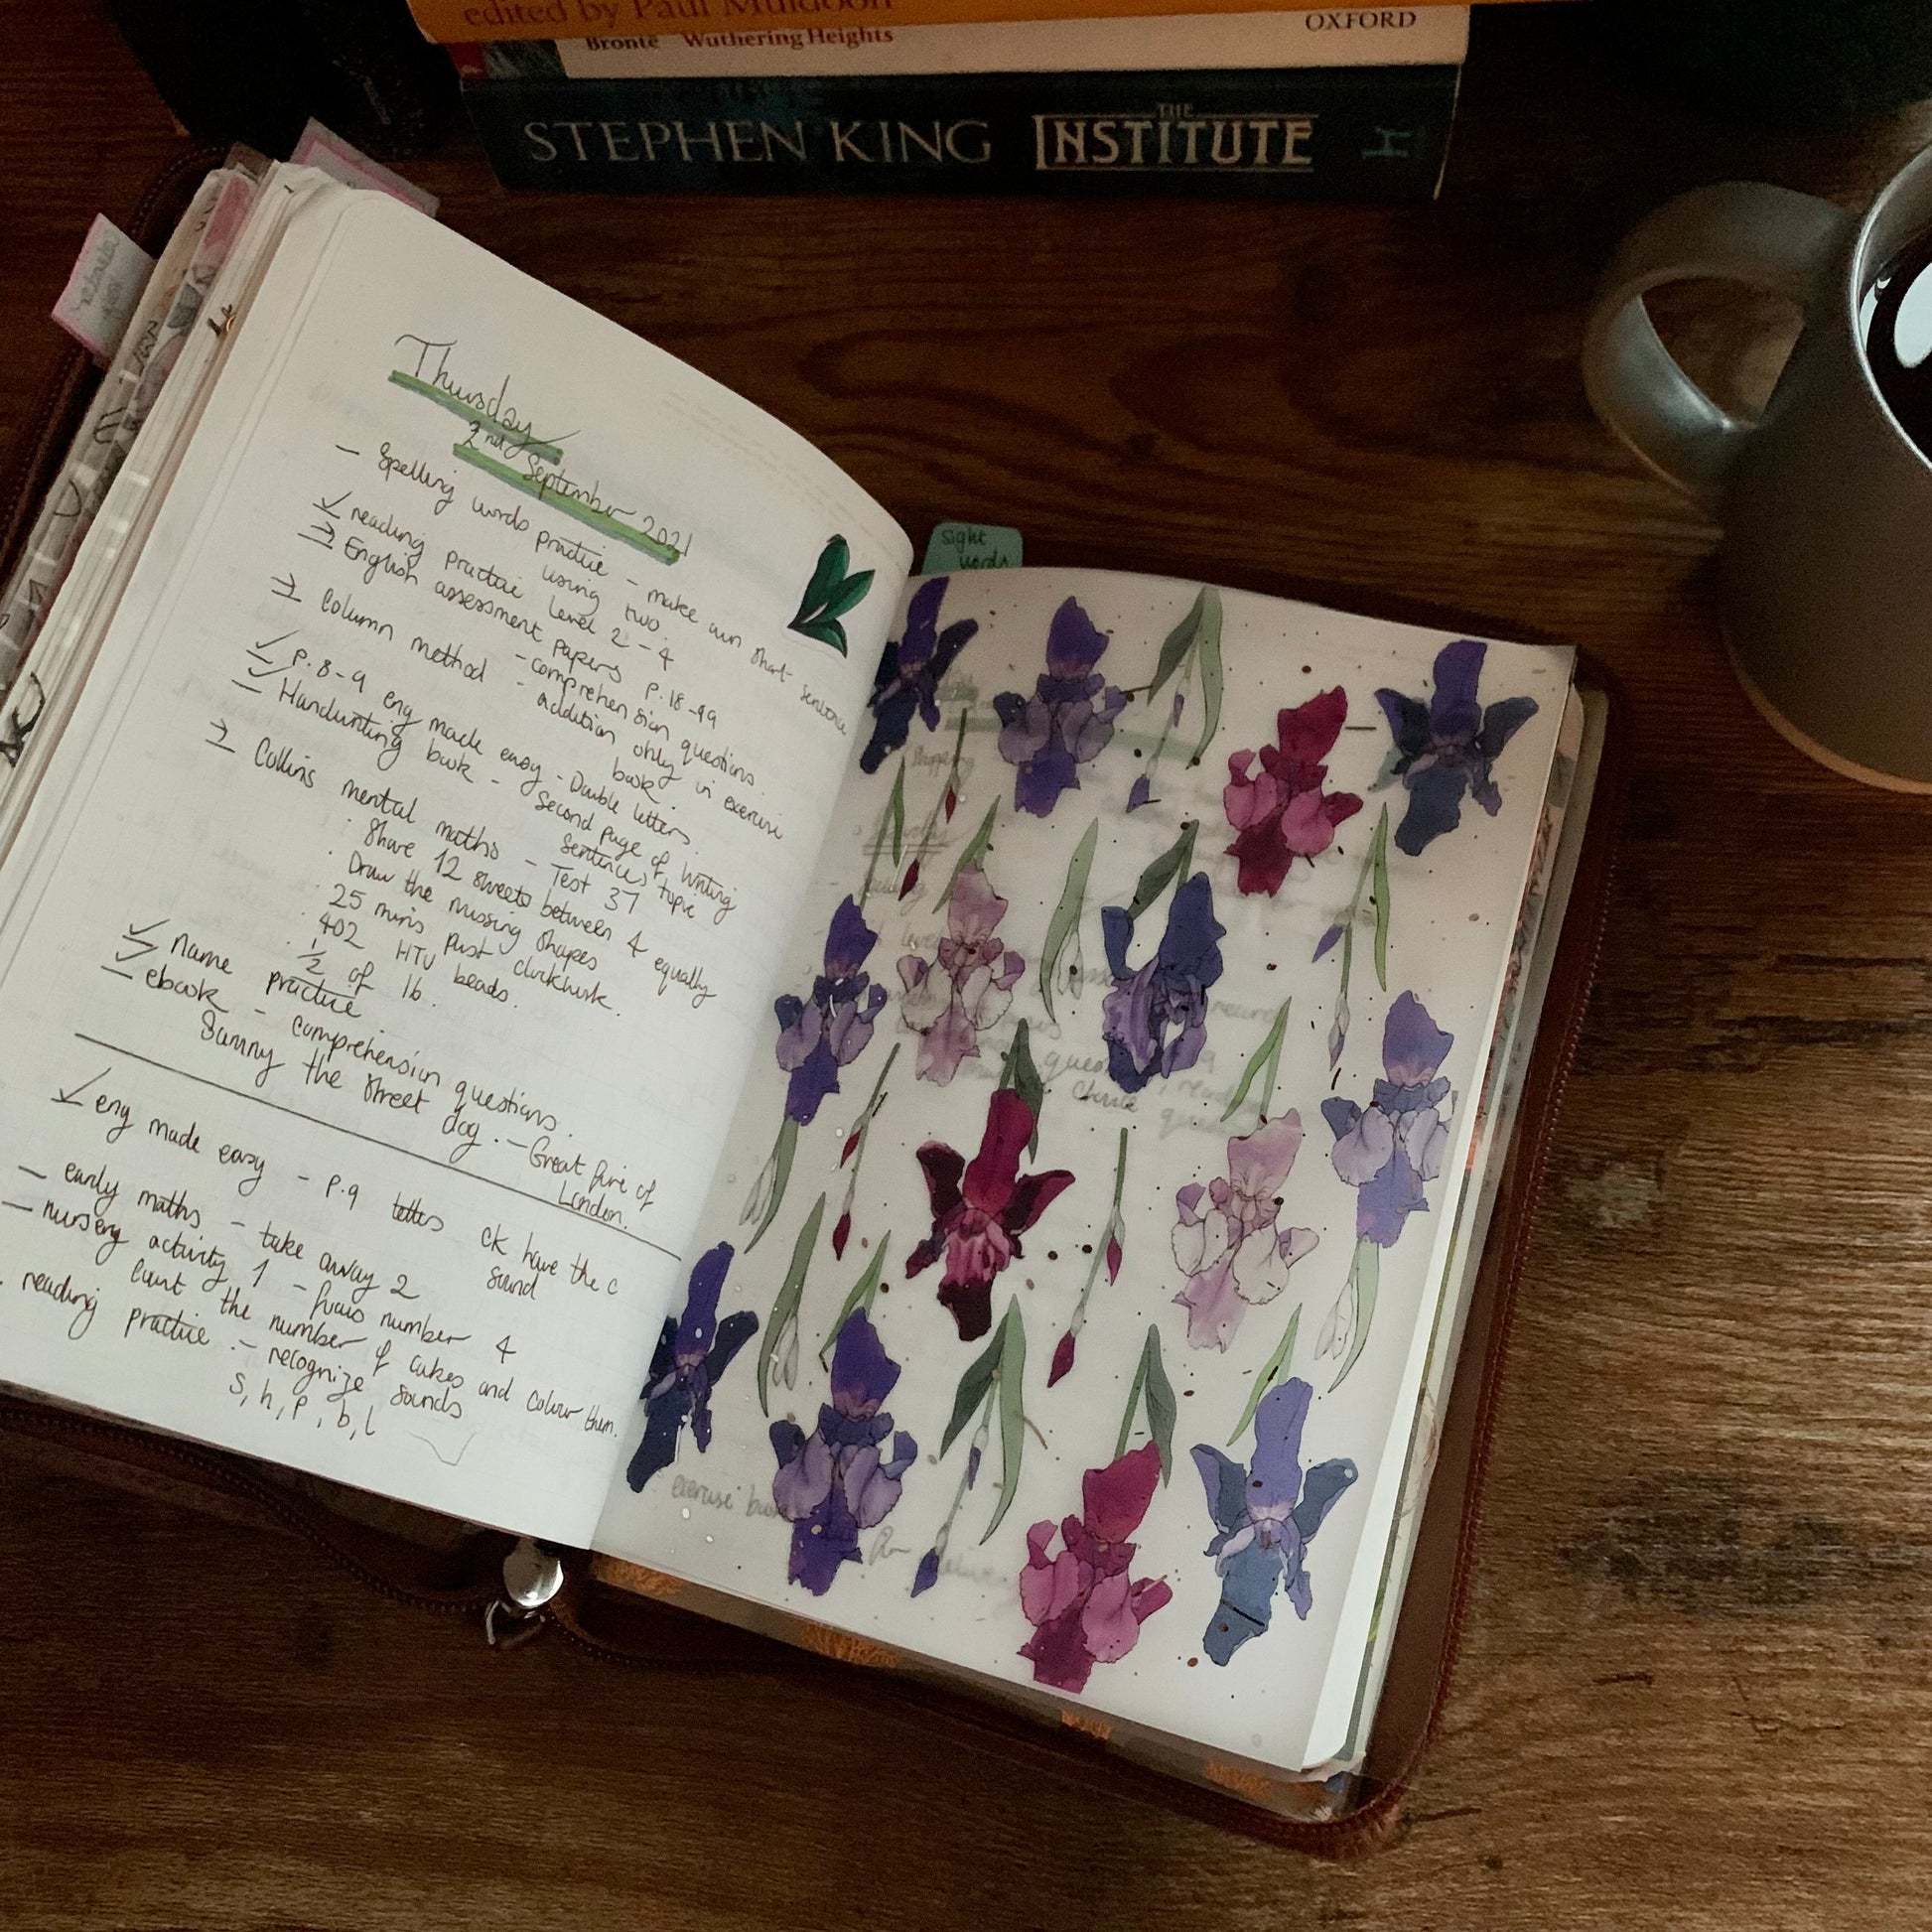 edited by Paul Muldoon
Brontë Wuthering Heights OXFORD
STEPHEN KING THE INSTITUTE
Thursday
2nd September 2021
- Spelling words practice - make own short sentence
using two.
reading practice level 2-4
English assessment papers p.18-19
- comprehension questions.
Column method - addition only in exercise
book.
p.8-9 eng made easy - Double letters.
Handwriting book - Second page of writing
sentences topic
Collins mental maths - Test 37
· Share 12 sweets between 4 equally
· Draw the missing shapes
· 25 mins past clockwork.
· 402 HTU beads.
· 1/2 of 16.
name practice.
ebook - comprehension questions.
Sunny the street dog. - Great fire of
London.
eng made easy - p.9 letters ck have the c
sound
- early maths - take away 2
- nursery activity 1 - focus number 4
count the number of cakes and colour them.
· reading practice - recognize sounds
s, h, p, b, l
sight
words
exercise book